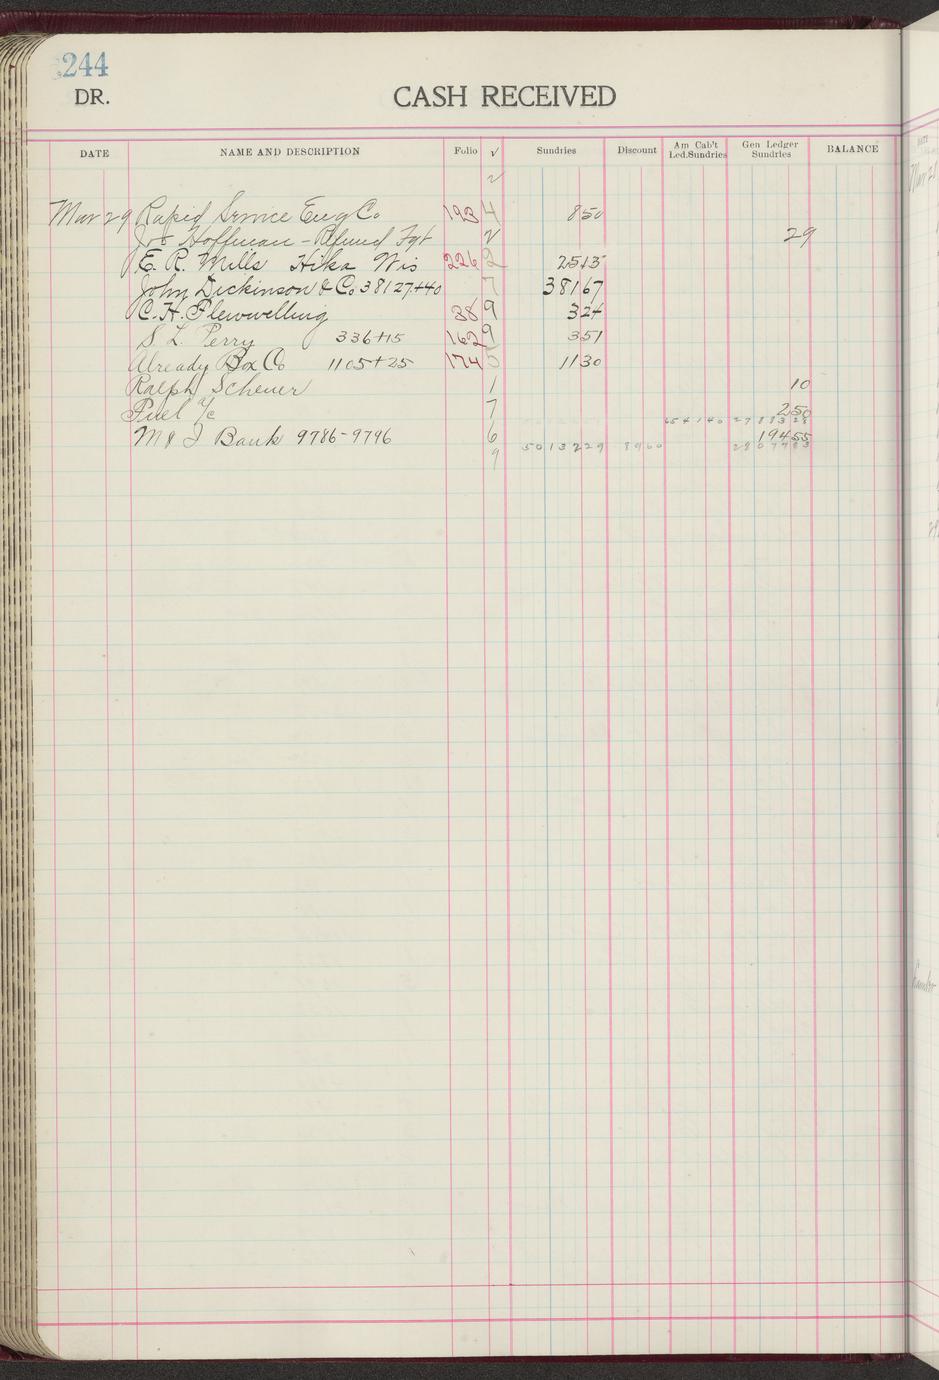 244
DR. CASH RECEIVED
DATE NAME AND DESCRIPTION Folio √ Sundries Discount Am Cab't Led.Sundries Gen Ledger Sundries BALANCE
Mar 29 Rapid Service Eng Co 193 4 850
Hoffman - Refund Fgt 29
E. R. Mills Hika Wis 226 2 2513
John Dickinson & Co 38127+40 7 38167
C. H. Flewwelling 38 9 324
S L Perry 336+15 162 9 351
Already Box Co 1105+25 174 5 1130
Ralph Scheuer 1 10
Fuel a/c 7 250
654140 2788328
M & I Bank 9786-9796 6 19455
9 5013229 8960 2807783